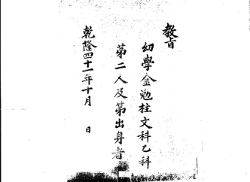 敎旨
幼學金勉柱文科乙科
第二人及第出身者
乾隆四十一年十月 日